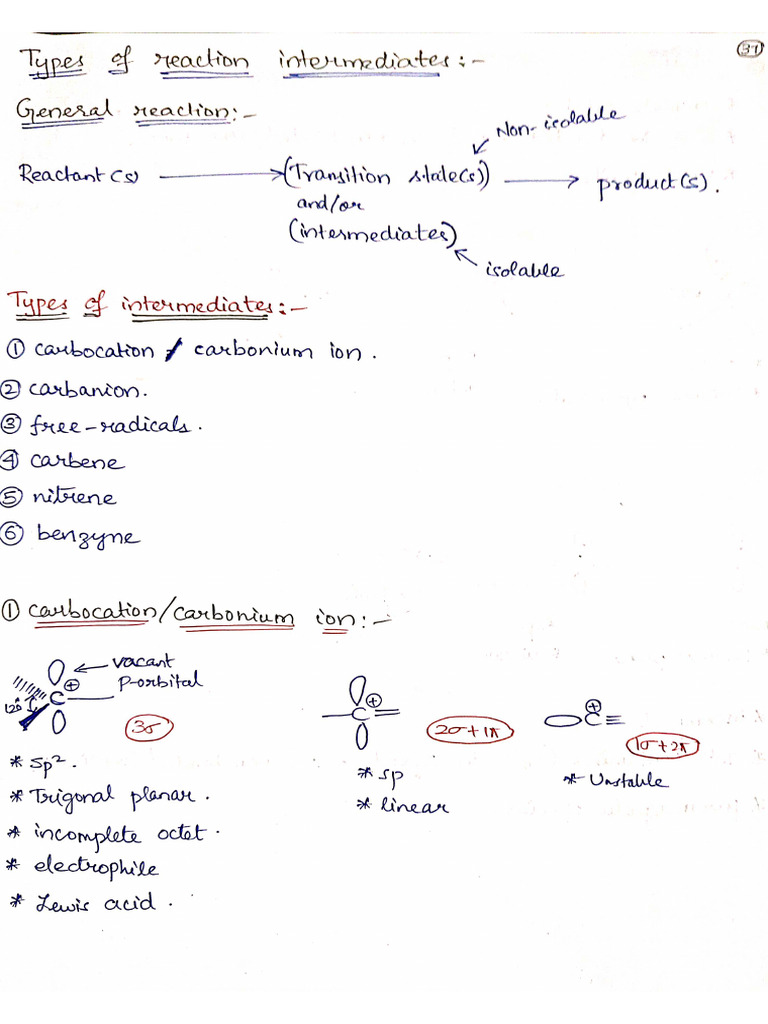 Types of reaction intermediates:-
37
General reaction:-
Non-isolable
Reactant(s) ⟶ (Transition state(s)) ⟶ product(s).
and/or
(intermediates)
isolable
Types of intermediates:-
① carbocation / carbonium ion.
② carbanion.
③ free-radicals.
④ carbene
⑤ nitrene
⑥ benzyne
① carbocation/carbonium ion:-
vacant
p-orbital
120°
C ⊕
3σ
* sp².
* Trigonal planar.
* incomplete octet.
* electrophile
* Lewis acid.
C ⊕
2σ+1π
* sp
* linear
C ⊕
1σ+2π
* Unstable